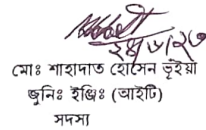 ২৪/৬/২৩
মোঃ শাহাদাত হোসেন ভূইয়া
জুনিঃ ইঞ্জিঃ (আইটি)
সদস্য